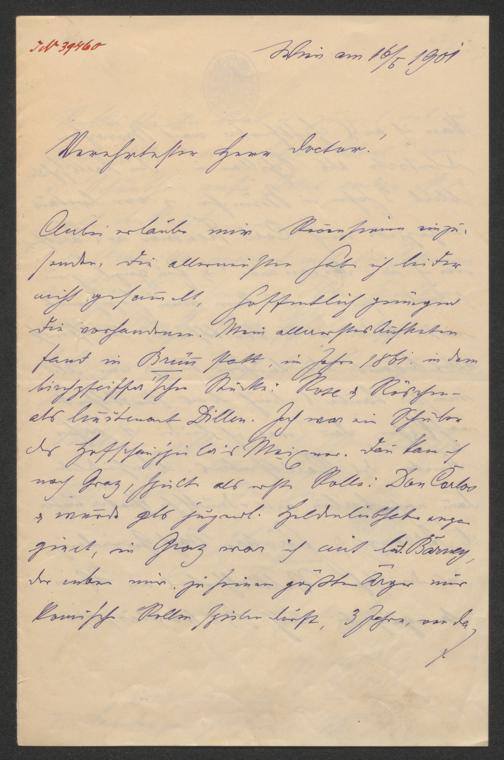 J.N. 39460
Wien am 16/5 1901
Verehrtester Herr Doctor!
Anbei erlaube mir Recensionen einzu-
senden, die allermeisten habe ich leider
nicht gesammelt, hoffentlich genügen
die vorhandenen. Mein allererstes Auftreten
fand in Brünn statt, im Jahre 1861 in dem
Birchpfeiffer'schen Stücke: Rose & Röschen –
als Lieutenant Dillen. Ich war ein Schüler
des Hofschauspielers Meixner. Dan kam ich
nach Graz, spielte als erste Rolle: Don Carlos
& wurde als jugendl. Heldenliebhaber enga-
giert, in Graz war ich mit Lud. Barnay,
der neben mir, zu seinem größten Ärger nur
komische Rollen spielen durfte, 3 Jahre, von da